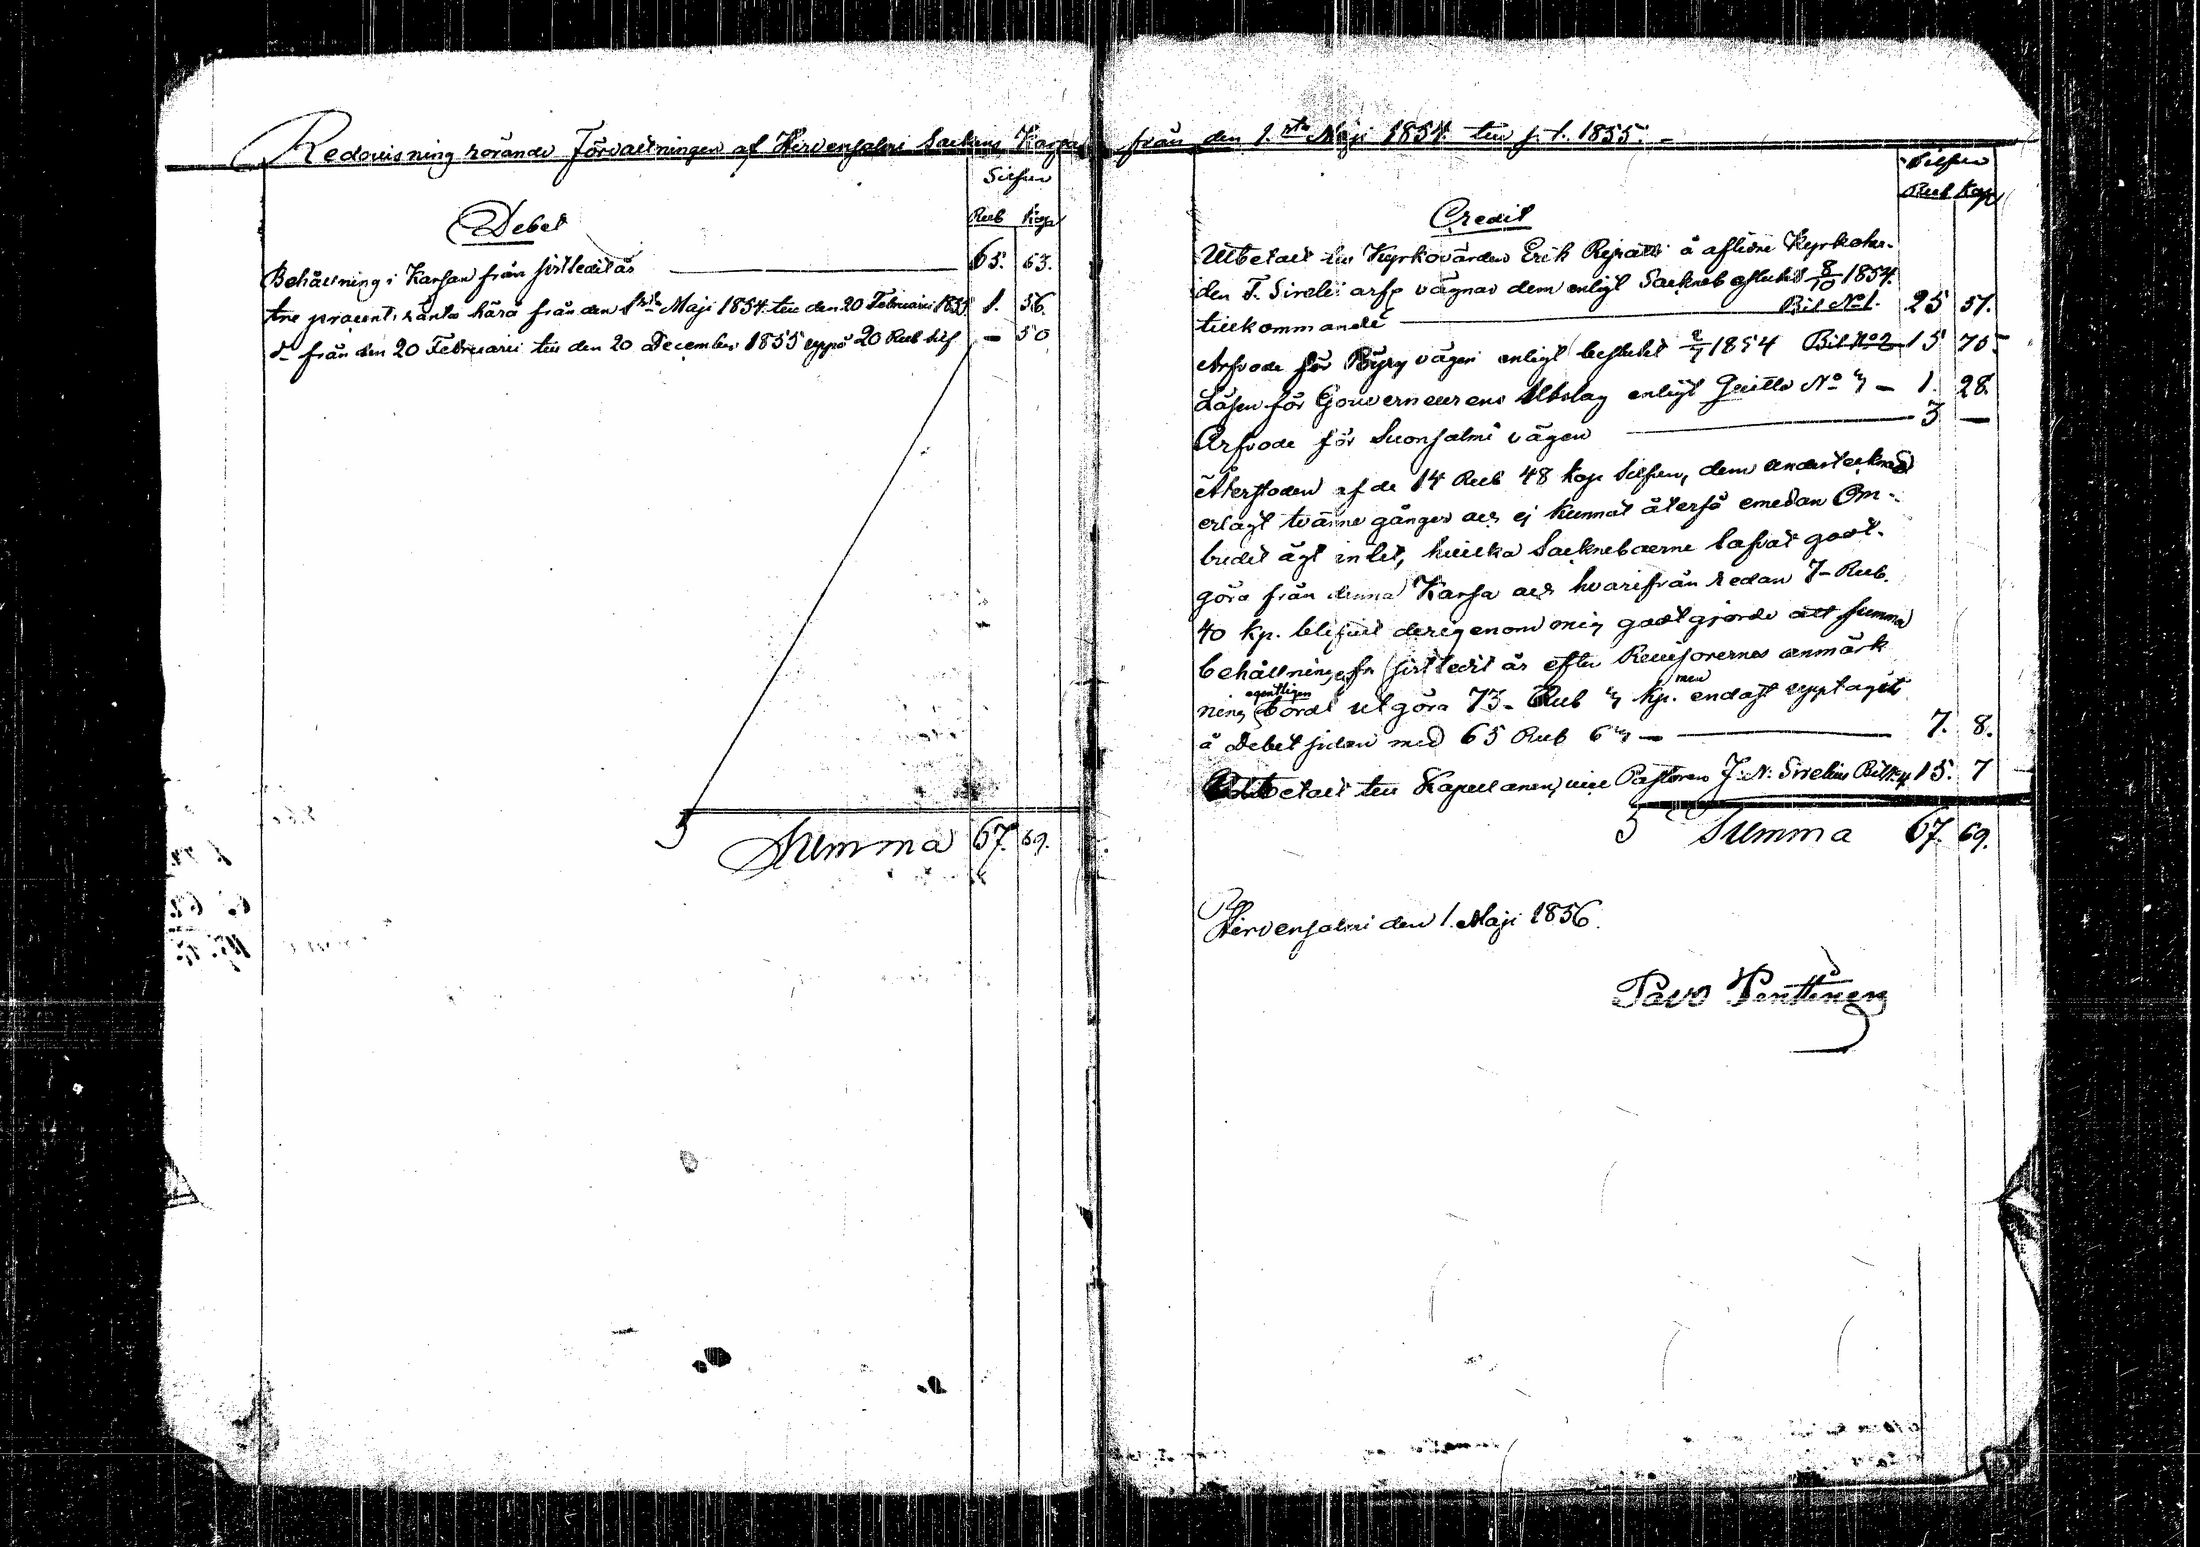 Redovisning rörande Förvaltningen af Hirvensalmi Sockens Kassa från den 1.sta Maji 1854 till s. t. 1855.
Silfver
Rub Kop
Debet
Behållning i Kassan från sistledit år 65. 63.
tre procents ränta härå från den 1sta Maji 1854 till den 20 Februarii 1855 1. 56.
d:o från den 20 Februarii till den 20 December 1855 uppå 20 Rub silf — 50
Summa 67. 69.
Silfver
Rub Kop
Credit
Utbetalt till Kyrkovärden Erik Repatti å aflidne Kyrkoher-
den F. Sirelii arfs vägnar dem enligt Sockneb. beslutet 8/10 1854.
tillkommande Bil No 1. 25 51.
Arfvode för Pöyry vägen enligt beslutet 2/7 1854 Bil No 2 15 75
Lösen för Gouverneurens Utslag enligt Quitto No 3 — 1. 28.
Arfvode för Suonsalmi vägen 3 —
Återstoden af de 14 Rub 48 kop Silfver, dem undertecknad
erlagt tvänne gånger och ej kunnat återfå emedan Om-
budet ägt intet, hvilka Sockneboerne lofvat godt-
göra från denna Kassa och hvarifrån redan 7 Rub.
40 kp. blifvit derigenom mig godtgjorde att summa
behållning fr. sistledit år efter Revisorernes anmärk
ning egentligen bordt utgöra 73 Rub 3 kp. men endast upptagits
å Debet sidan med 65 Rub 63 — 7. 8.
Utbetalt till Kapellanen, vice Pastoren J. N. Sirelius Bil No 4 15. 7
Summa 67. 69.
Hirvensalmi den 1. Maji 1856.
Pavo Penttinen